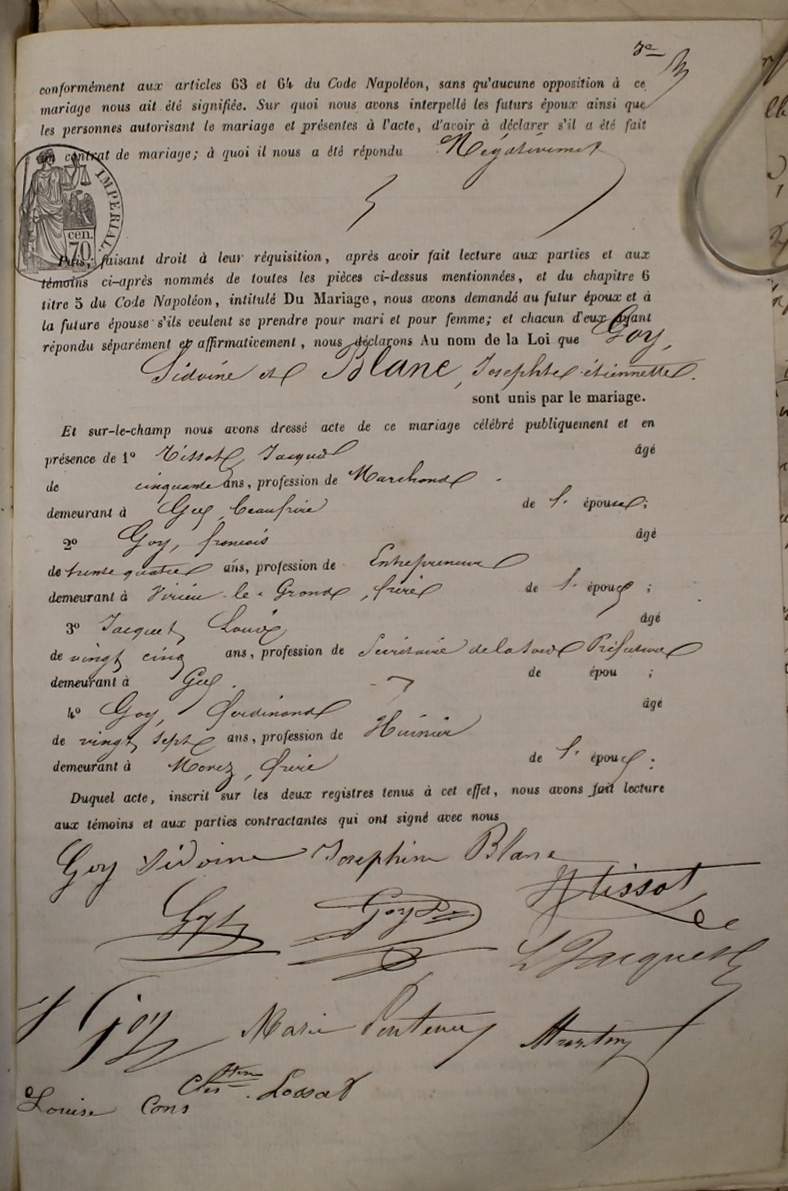 3e
conformément aux articles 63 et 64 du Code Napoléon, sans qu'aucune opposition à ce
mariage nous ait été signifiée. Sur quoi nous avons interpellé les futurs époux ainsi que
les personnes autorisant le mariage et présentes à l'acte, d'avoir à déclarer s'il a été fait
un contrat de mariage; à quoi il nous a été répondu Négativement
IMPERIAL
70 cen.
Puis, faisant droit à leur réquisition, après avoir fait lecture aux parties et aux
témoins ci-après nommés de toutes les pièces ci-dessus mentionnées, et du chapitre 6
titre 5 du Code Napoléon, intitulé Du Mariage, nous avons demandé au futur époux et à
la future épouse s'ils veulent se prendre pour mari et pour femme; et chacun d'eux ayant
répondu séparément et affirmativement, nous déclarons Au nom de la Loi que Goy,
Sidoine et Blanc, Josephte étiennette.
sont unis par le mariage.
Et sur-le-champ nous avons dressé acte de ce mariage célébré publiquement et en
présence de 1° Tissot, Jacques âgé
de cinquante ans, profession de Marchand
demeurant à Gex, beaufrère de l' épouse;
2° Goy, francois âgé
de trente quatre ans, profession de Entrepreneur
demeurant à Virieu-le-Grand, frère de l' époux;
3° Jacquet, Louis âgé
de vingt cinq ans, profession de Secrétaire de la sous Préfecture
demeurant à Gex. de épou ;
4° Goy, ferdinand âgé
de vingt sept ans, profession de Huissier
demeurant à Morez, frère de l' époux;
Duquel acte, inscrit sur les deux registres tenus à cet effet, nous avons fait lecture
aux témoins et aux parties contractantes qui ont signé avec nous
Goy Sidoine Josephine Blanc
Tissot
Goy
L Jacquet
Goy Marie
Louise Cons